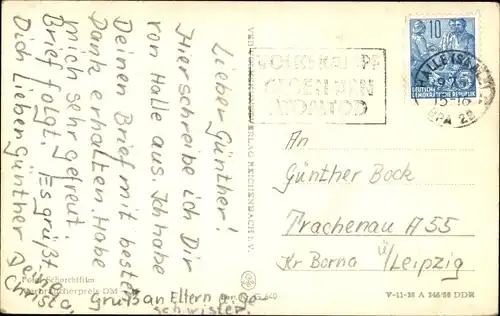 Lieber Günther!
Hier schreibe ich Dir
von Halle aus. Ich habe
Deinen Brief mit besten
Dank erhalten. Habe
mich sehr gefreut.
Brief folgt. Es grüßt
Dich lieben Günther Deine
Christa.
Gruß an Eltern u. Ge-
schwister.
GEGEN DEN
ATOMTOD
10
DEUTSCHE
DEMOKRATISCHE REPUBLIK
HALLE (SAALE)
15-16
BPA 28
An
Günther Bock
Trachenau A 55
Kr Borna ü/Leipzig
Foto: Schochtfilm
Verbraucherpreis DM
REICHENBACH I. V.
V-11-28 A 346/58 DDR